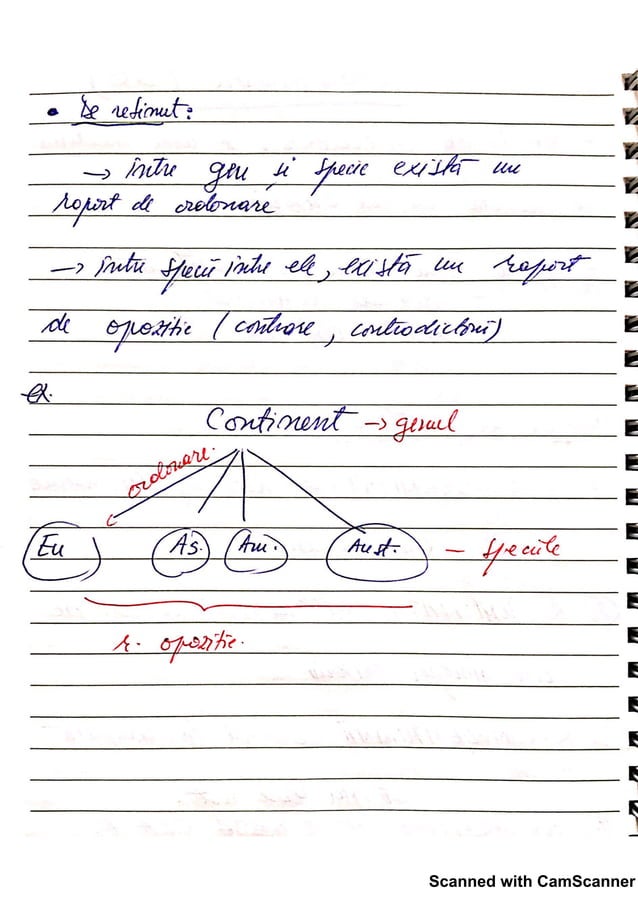 • De reținut:
→ între gen și specie există un
raport de ordonare
→ între specii între ele, există un raport
de opoziție (contrare, contradictorii)
ex.
Continent → genul
ordonare.
Eu As. Am. Aust. – speciile
r. opoziție.
Scanned with CamScanner